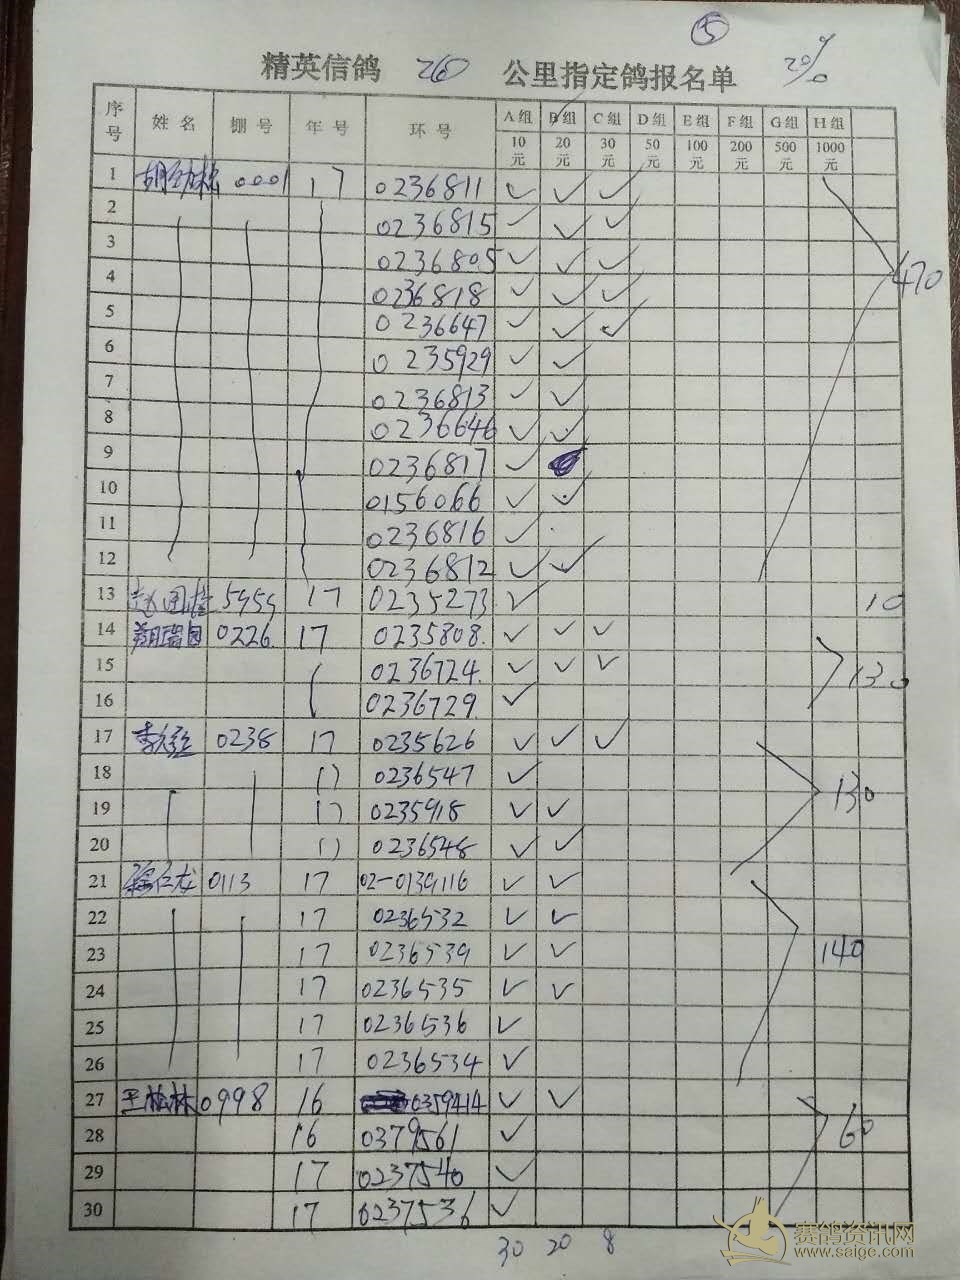 ⑤
精英信鸽 260 公里指定鸽报名单 20%
序号 姓名 棚号 年号 环号 A组 B组 C组 D组 E组 F组 G组 H组
10元 20元 30元 50元 100元 200元 500元 1000元
1 0001 17 0236811 ✓ ✓ ✓
2 0236815 ✓ ✓ ✓
3 0236805 ✓ ✓ ✓
4 0236818 ✓ ✓ ✓ 470
5 0236647 ✓ ✓ ✓
6 0235929 ✓ ✓
7 0236813 ✓ ✓
8 0236646 ✓ ✓
9 0236817 ✓
10 0156066 ✓ ✓
11 0236816 ✓
12 0236812 ✓ ✓
13 5959 17 0235273 ✓ 10
14 0226 17 0235808 ✓ ✓ ✓
15 0236724 ✓ ✓ ✓ 130
16 0236729 ✓
17 0238 17 0235626 ✓ ✓ ✓
18 17 0236547 ✓
19 17 0235918 ✓ ✓ 130
20 17 0236548 ✓ ✓
21 0113 17 02-0139116 ✓ ✓
22 17 0236532 ✓ ✓
23 17 0236539 ✓ ✓ 140
24 17 0236535 ✓ ✓
25 17 0236536 ✓
26 17 0236534 ✓
27 王松林 0998 16 0359414 ✓ ✓
28 16 0379561 ✓ 60
29 17 0237540 ✓
30 17 0237536 ✓
30 20 8
赛鸽资讯网
www.saige.com